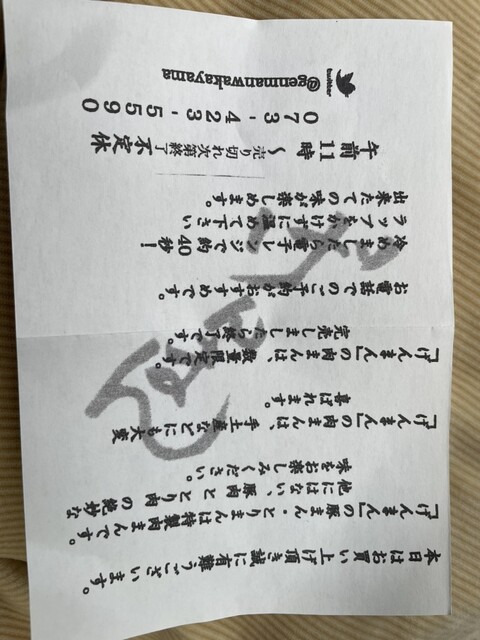 本日はお買い上げ頂き誠に有難うございます。
「げんまん」の豚まん・とりまんは特製肉まんです。
他にはない、豚肉ととり肉の絶妙な
味をお楽しみください。
「げんまん」の肉まんは、手土産などにも大変
喜ばれます。
「げんまん」の肉まんは、数量限定です。
完売しましたら終了です。
お電話でのご予約がおすすめです。
冷めましたら電子レンジで約40秒！
ラップをかけずに温めて下さい
出来たての味が楽しめます。
午前11時～売り切れ次第終了 不定休
073-423-5590
twitter
@genmanwakayama